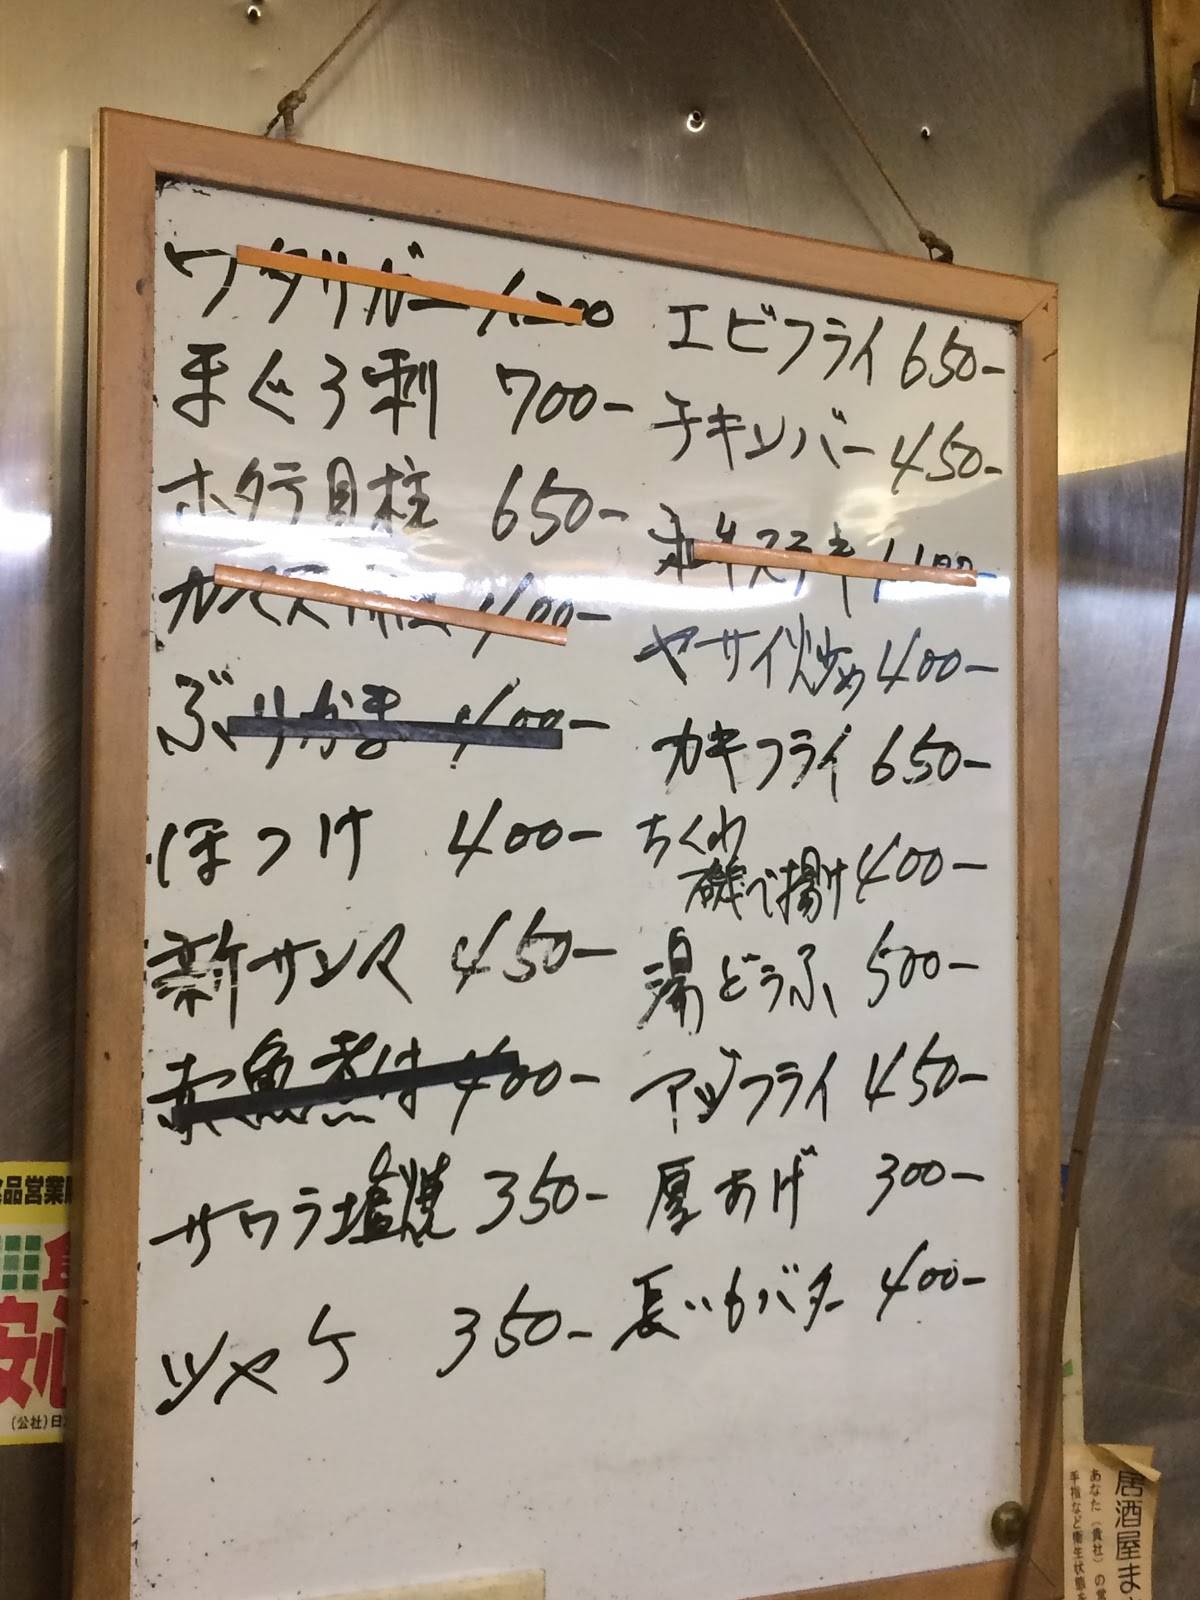 ワタリガニ 1200
まぐろ刺 700-
ホタテ貝柱 650-
400-
ぶりかま 400-
ほっけ 400-
新サンマ 450-
赤魚煮付 400-
サワラ塩焼 350-
シャケ 350-
エビフライ 650-
チキンバー 450-
ステキ 1100-
ヤサイ炒め 400-
カキフライ 650-
ちくわ
磯べ揚げ 400-
湯どうふ 500-
アジフライ 450-
厚あげ 300-
長いもバター 400-
品営業
安心
(公社)日
居酒屋ま
あなた(貴社)の営
手指など衛生状態を